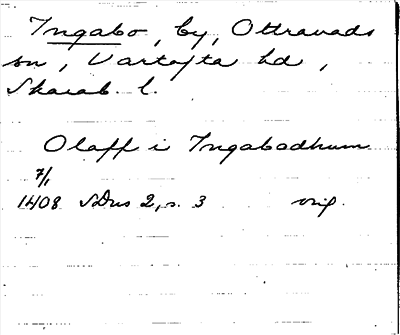 Ingabo, by, Ottravads
sn, Vartofta hd,
Skarab. l.
Olaff i Ingabodhum
7/1
1408 SDns 2, s. 3 orig.